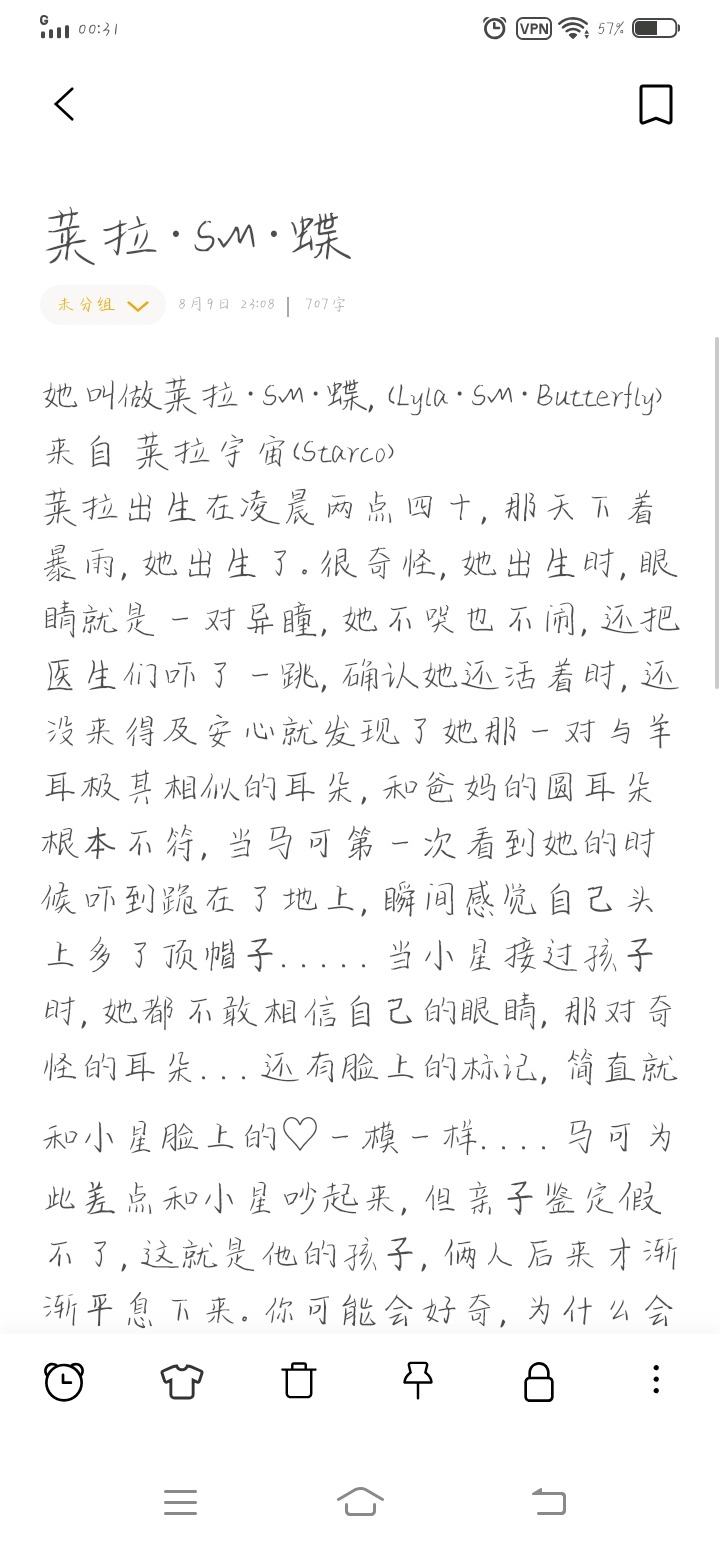 G 00:31 VPN 57%
莱拉·SM·蝶
未分组 8月9日 23:08 | 707字
她叫做莱拉·SM·蝶,(Lyla·SM·Butterfly)
来自 莱拉宇宙(Starco)
莱拉出生在凌晨两点四十,那天下着
暴雨,她出生了。很奇怪,她出生时,眼
睛就是一对异瞳,她不哭也不闹,还把
医生们吓了一跳,确认她还活着时,还
没来得及安心就发现了她那一对与羊
耳极其相似的耳朵,和爸妈的圆耳朵
根本不符,当马可第一次看到她的时
候吓到跪在了地上,瞬间感觉自己头
上多了顶帽子.....当小星接过孩子
时,她都不敢相信自己的眼睛,那对奇
怪的耳朵...还有脸上的标记,简直就
和小星脸上的♡一模一样....马可为
此差点和小星吵起来,但亲子鉴定假
不了,这就是他的孩子,俩人后来才渐
渐平息下来。你可能会好奇,为什么会